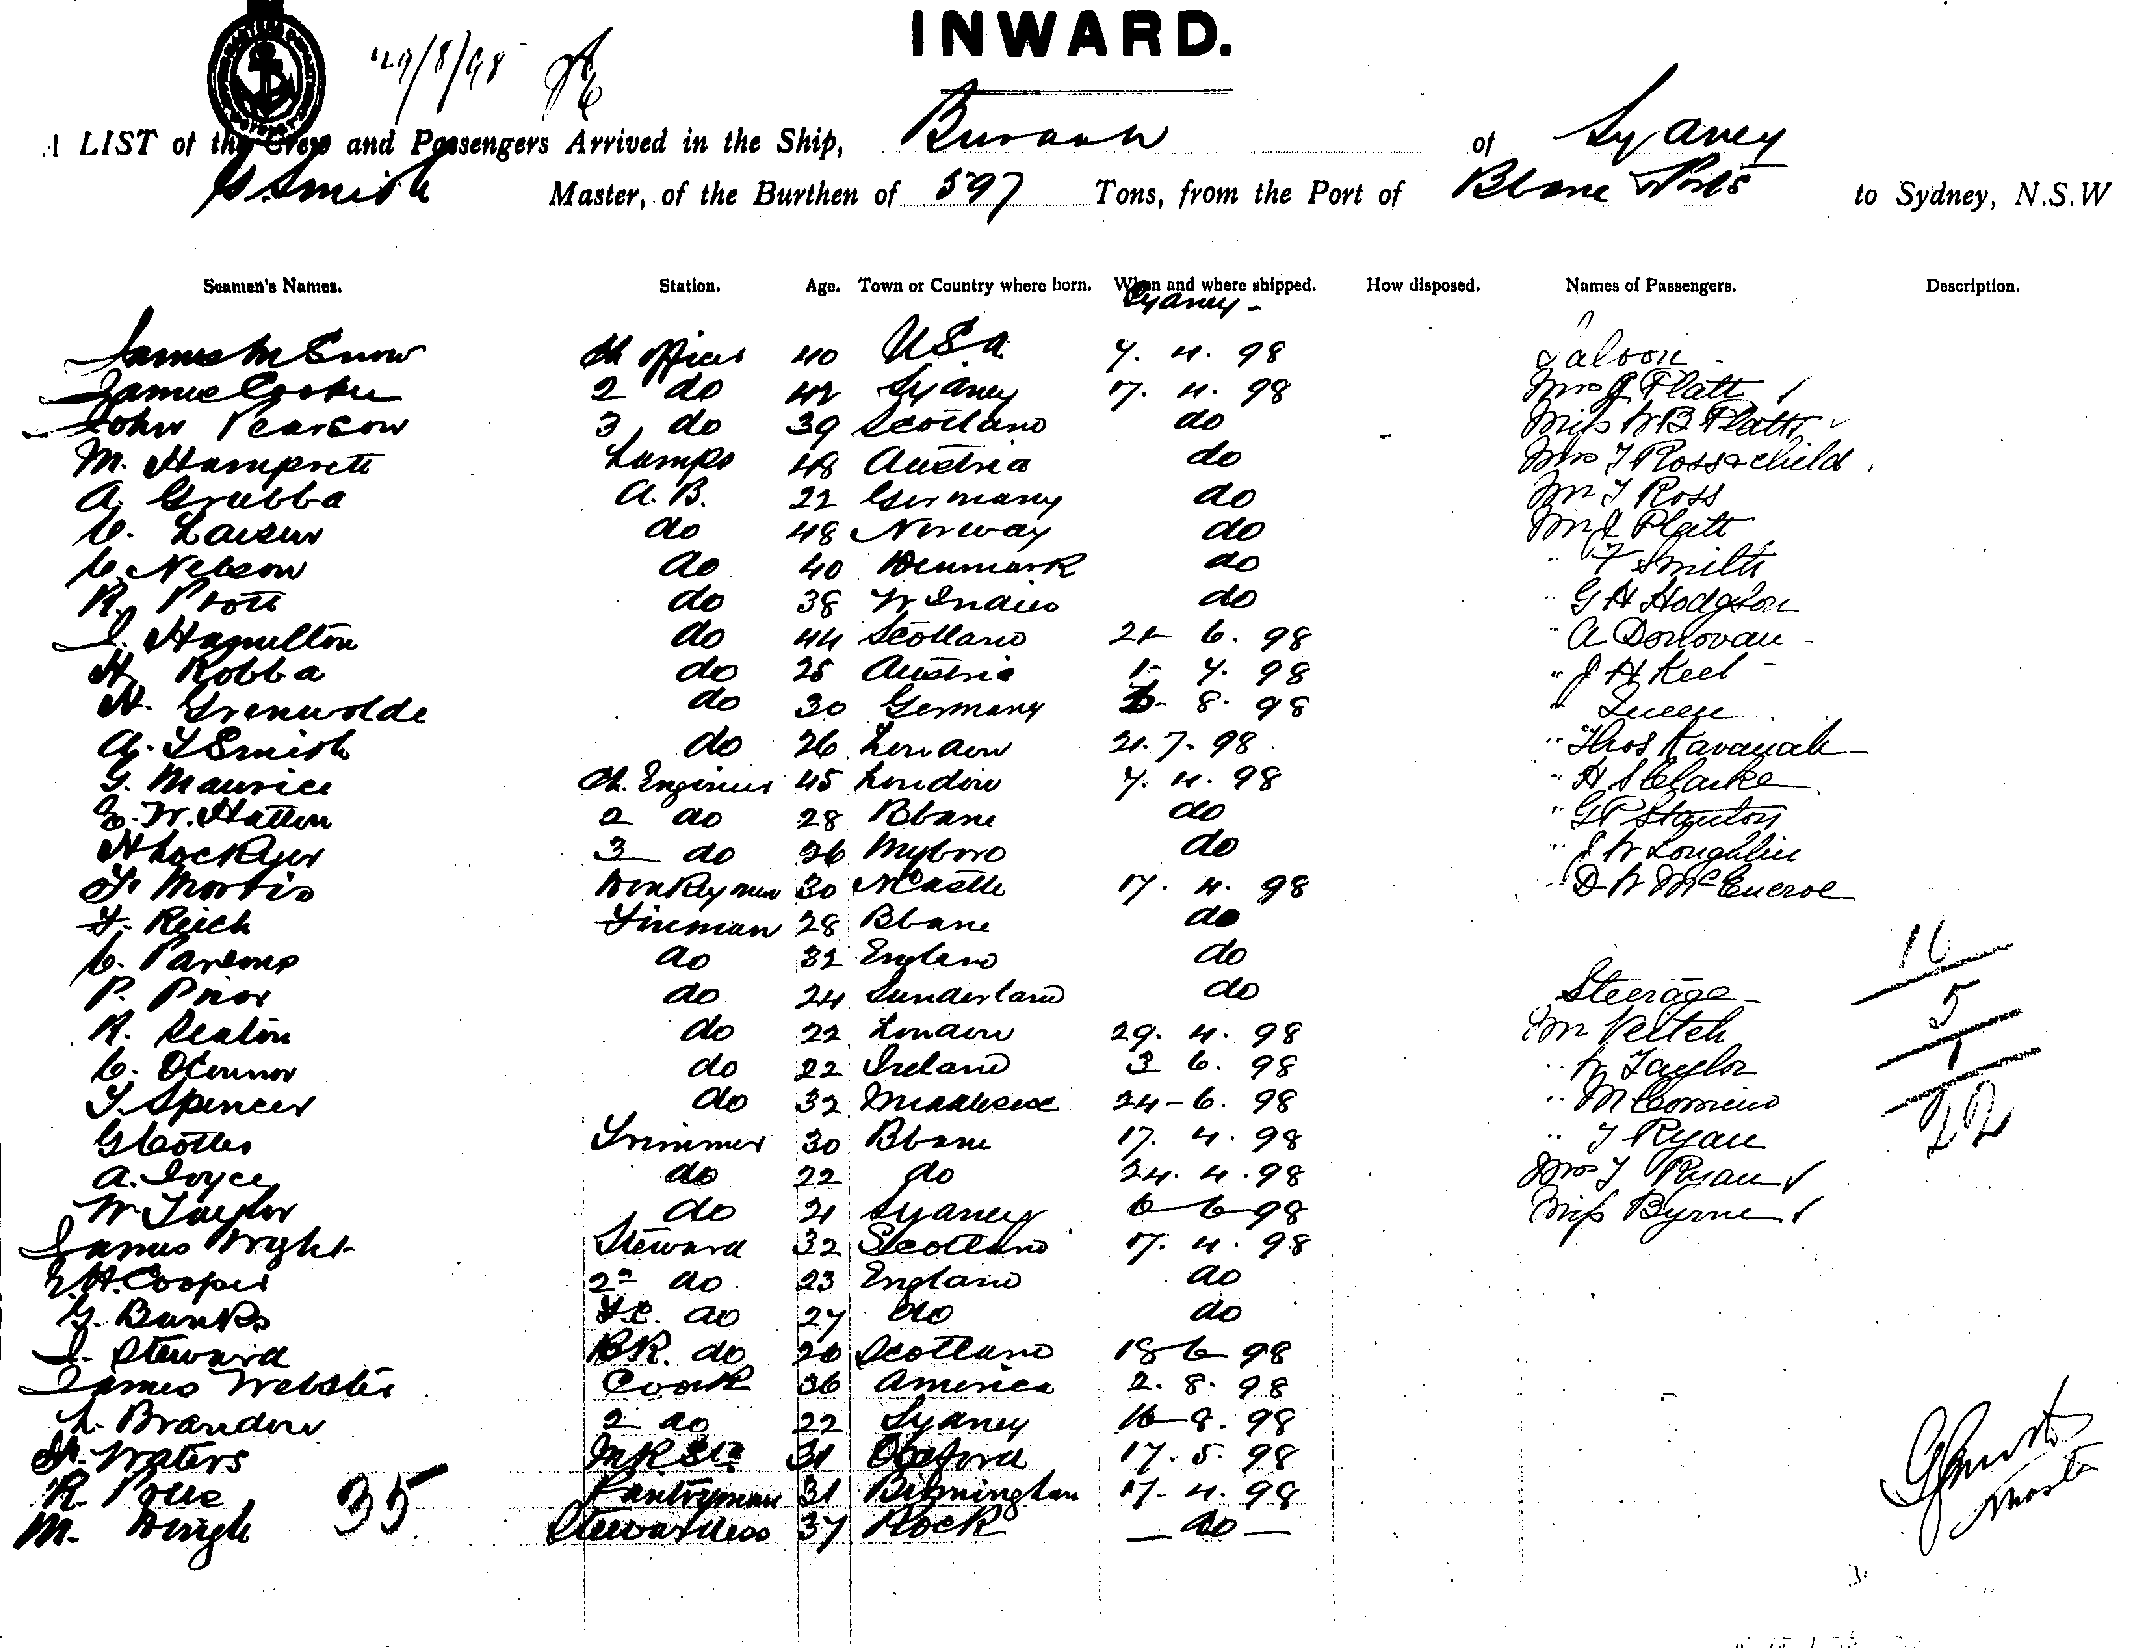 INWARD.
29/8/98
A LIST of the Crew and Passengers Arrived in the Ship, of Sydney
G. Smith Master, of the Burthen of 597 Tons, from the Port of Bbane & Ports to Sydney, N.S.W
Seamen's Names. Station. Age. Town or Country where born. When and where shipped. How disposed. Names of Passengers. Description.
Sydney -
James M Snow Ch Officer 40 USA 7. 4. 98 Saloon
James Cooke 2 do 42 Sydney 17. 4. 98 Mrs J Platt
John Pearson 3 do 39 Scotland do Miss W B Platt
M. Lamps 48 Austria do Mrs T Rosschild
A. Grubba A.B. 22 Germany do Mr T Ross
C. Larsen do 48 Norway do Mr J Platt
C. Nelson do 40 Denmark do " F Smith
R. Pratt do 38 W Indies do " G H Hodgson
J. Hamilton do 44 Scotland 21 6. 98 " A Donovan
H. Robba do 25 Austria 1- 7. 98 " J H Keel
H. Grenwolde do 30 Germany 8. 98 "
A. T Smith do 26 London 21. 7. 98 " Thos Kavanah
G. Maurice Ch. Engineer 45 London 7. 4. 98 " H S Clarke
E. W. Hatton 2 do 28 Bbane do " G P Stanton
H Lockyer 3 do 26 Myboro do " J W Loughlin
F. Morris Donkeyman 30 NCastle 17. 4. 98 " D W McEncroe
F. Reich Fireman 28 Bbane do
C. Parsons do 32 England do 16
P. Prior do 24 Sunderland do Steerage
R. Seaton do 22 London 29. 4. 98 Mr Veitch 5
C. OConnor do 22 Ireland 3 6. 98 " W Taylor 1
T. Spencer do 32 Middlesex 24-6. 98 " M Comino
G Cotter Trimmer 30 Bbane 17. 4. 98 " T Ryan 22
A. Joyce do 22 do 24. 4. 98 Mrs T Ryan
W Taylor do 21 Sydney 6-6-98 Miss Byrne
James Wright Steward 32 Scotland 17. 4. 98
E. H. Cooper 2nd do 23 England do
G. Banks F.C. do 27 do do
J. Steward B.R. do 20 Scotland 18 6- 98
James Webster Cook 36 America 2. 8. 98
L. Brandon 2 do 22 Sydney 16-8. 98
H. Waters 31 Oxford 17. 5. 98
R. Pantryman 31 Birmingham 17. 4. 98
M. Stewardess 37 Rock - do -
35
G Smith
Master